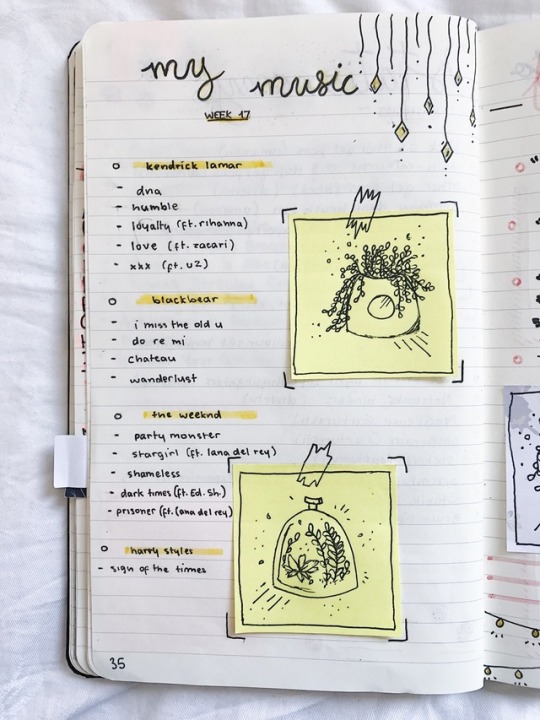 my music
WEEK 17
kendrick lamar
- dna
- humble
- loyalty (ft. rihanna)
- love (ft. zacari)
- xxx (ft. U2)
blackbear
- i miss the old u
- do re mi
- chateau
- wanderlust
the weeknd
- party monster
- stargirl (ft. lana del rey)
- shameless
- dark times (ft. Ed. Sh.)
- prisoner (ft. lana del rey)
harry styles
- sign of the times
35